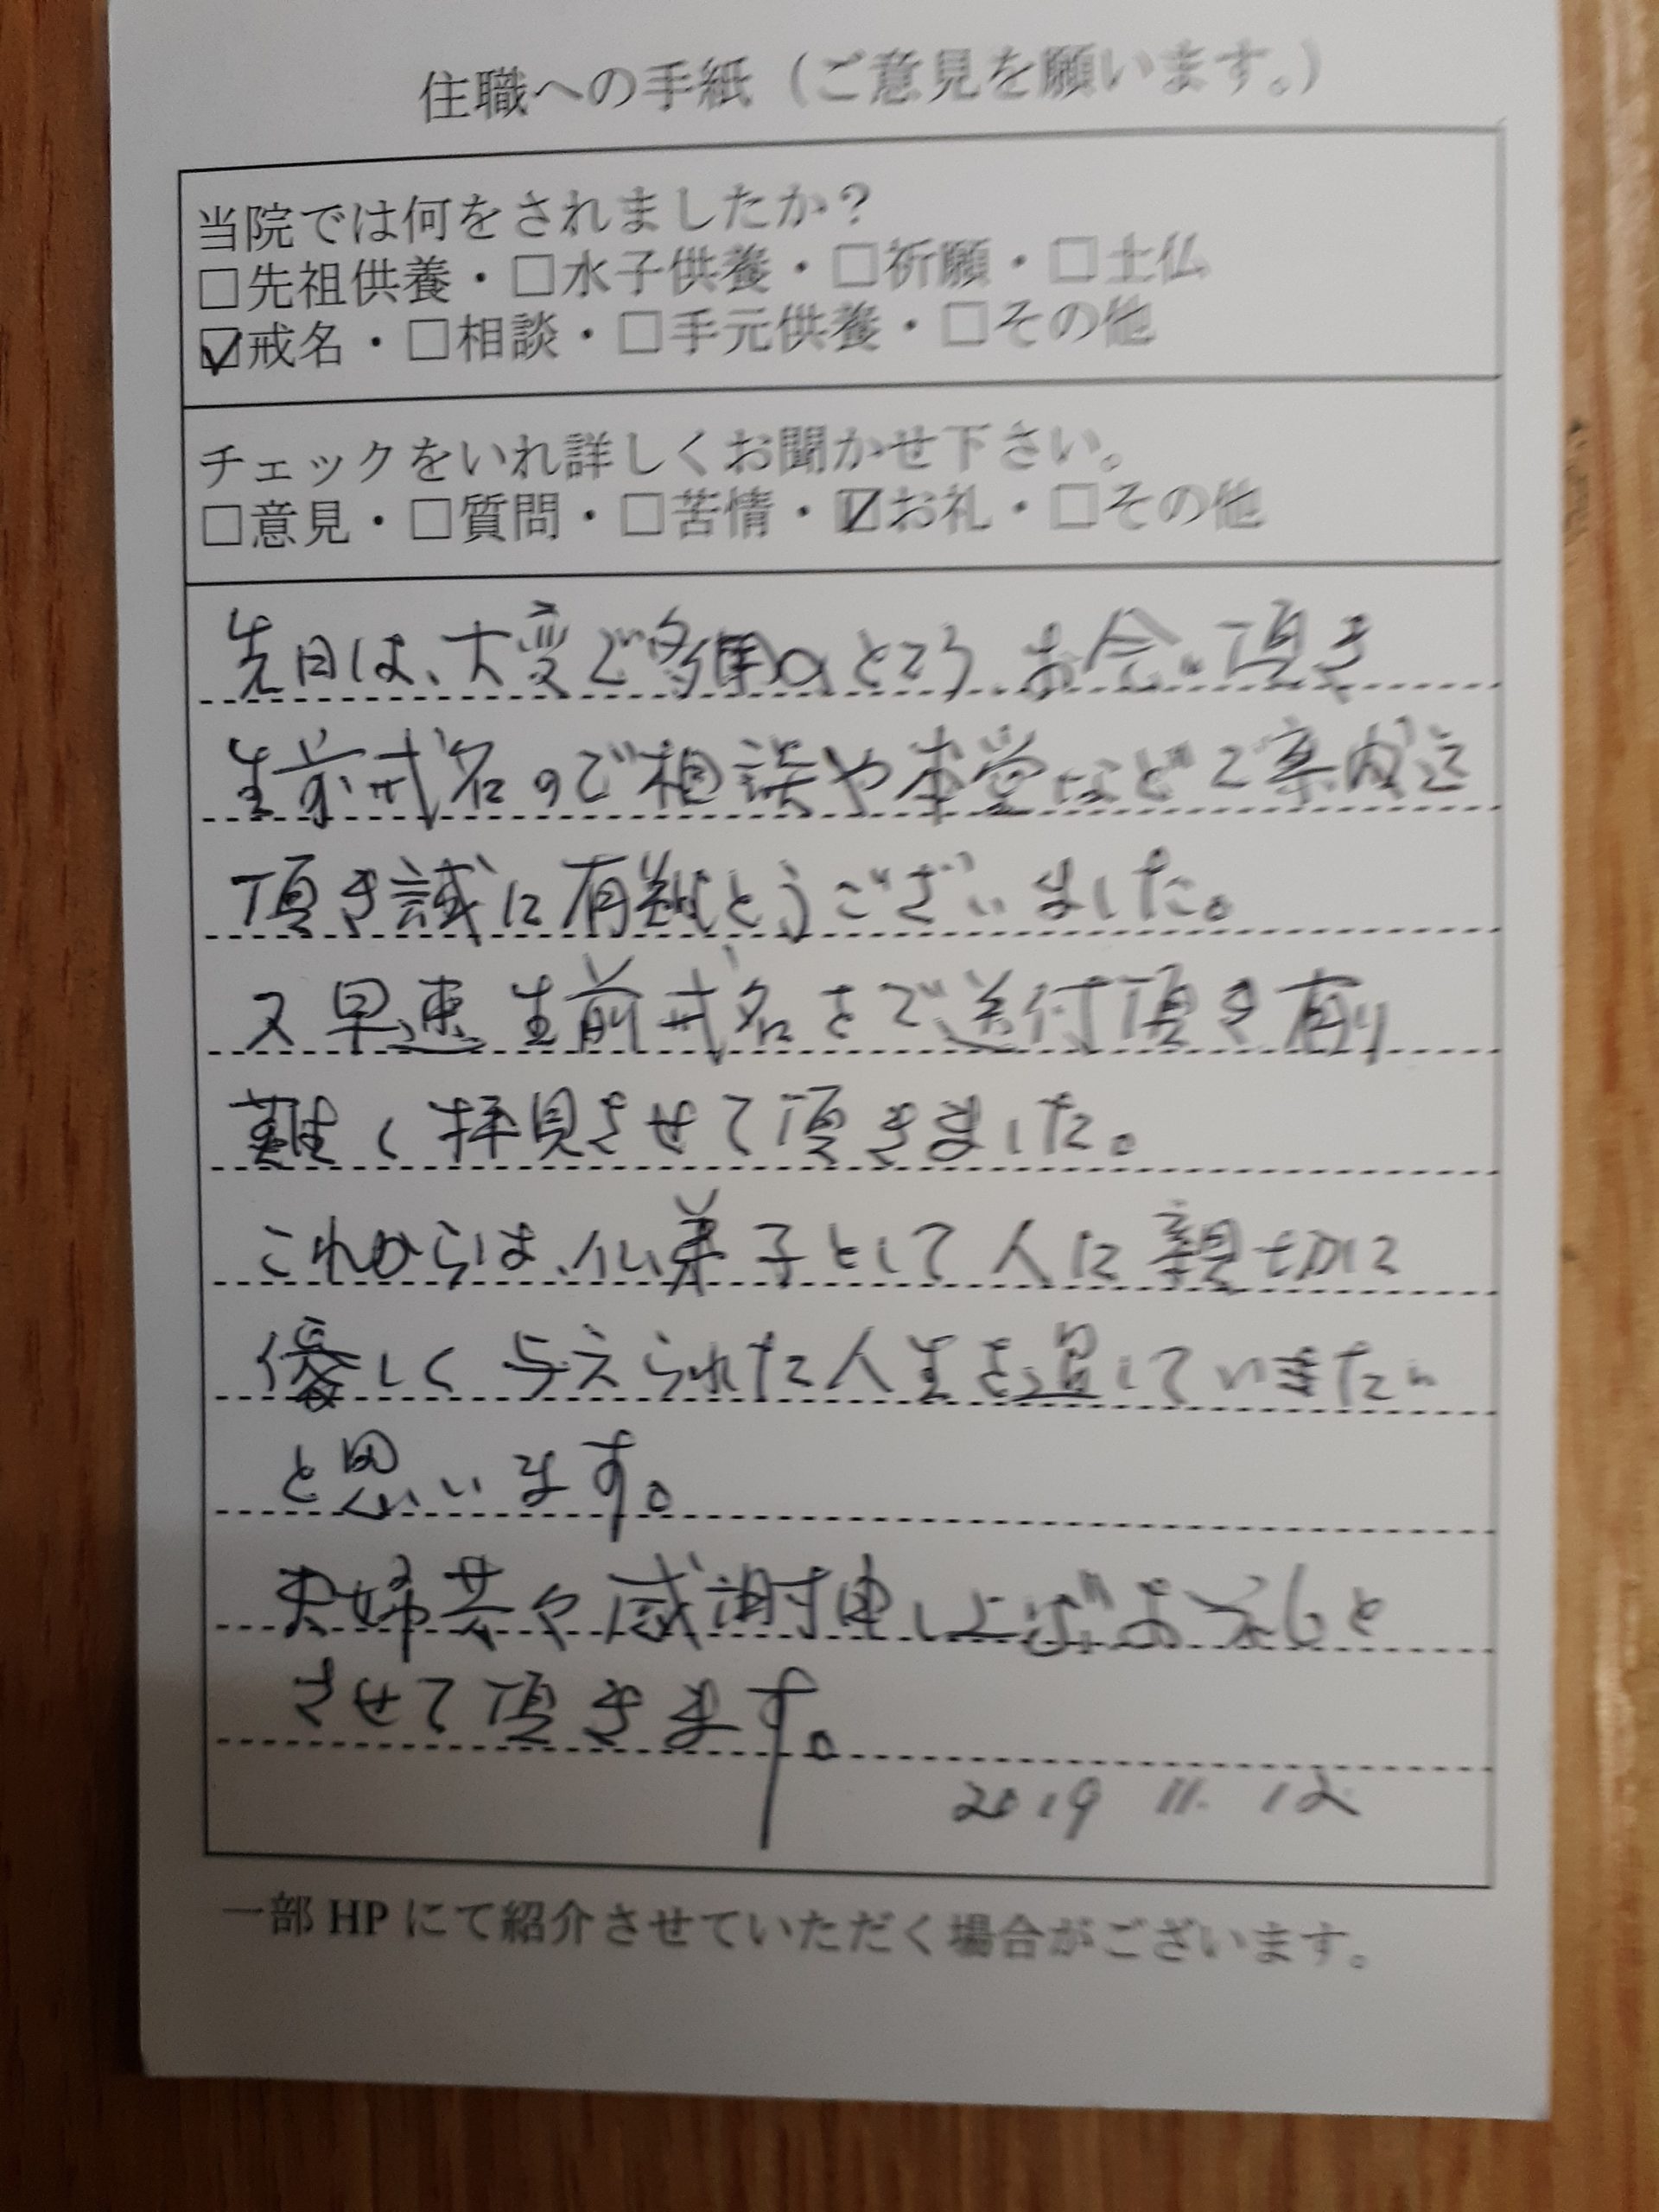 住職への手紙（ご意見を願います。）
当院では何をされましたか？
□先祖供養・□水子供養・□祈願・□土仏
☑戒名・□相談・□手元供養・□その他
チェックをいれ詳しくお聞かせ下さい。
□意見・□質問・□苦情・☑お礼・□その他
先日は、大変ご多用のところ、お会い頂き
生前戒名のご相談や本堂などご案内迄
頂き誠に有難とうございました。
又早速生前戒名をご送付頂き有り
難く拝見させて頂きました。
これからは、仏弟子として人に親切に
優しく与えられた人生を過していきたい
と思います。
夫婦共々感謝申し上げお礼と
させて頂きます。
2019 11. 12
一部HPにて紹介させていただく場合がございます。